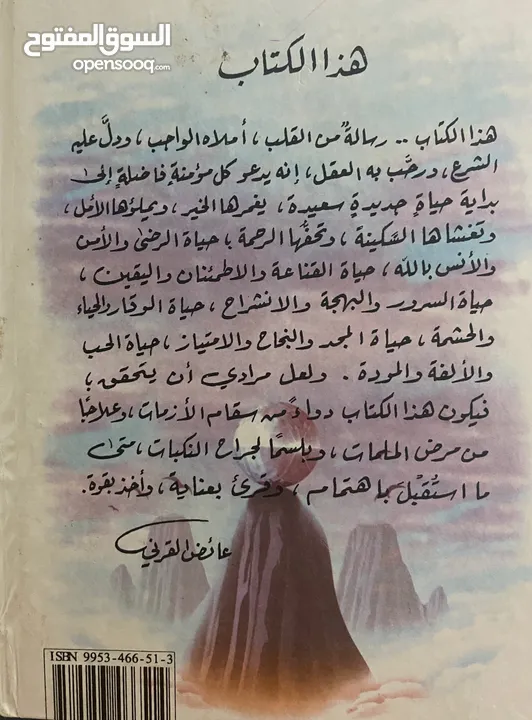 السوق المفتوح
opensooq.com
هذا الكتاب
هذا الكتاب .. رسالةٌ من القلب ، أملاه الواجب ، ودلَّ عليه
الشرع ، ورحَّب به العقل ، إنه يدعو كل مؤمنةٍ فاضلةٍ إلى
بداية حياةٍ جديدةٍ سعيدة ، يغمرها الخير ، ويملؤها الأمل ،
وتغشاها السَّكينة ، وتحفُّها الرحمة ، حياة الرضى والأمن
والأنس بالله ، حياة القناعة والاطمئنان واليقين ،
حياة السرور والبهجة والانشراح ، حياة الوقار والحياء
والحشمة ، حياة المجد والنجاح والامتياز ، حياة الحب
والألفة والمودة . ولعل مرادي أن يتحقق ،
فيكون هذا الكتاب دواءً من سقام الأزمات ، وعلاجًا
من مرض الملمات ، وبلسمًا لجراح النكبات ، متى
ما استُقْبل باهتمام ، وقرئ بعناية ، وأخذ بقوة .
عائض القرني
ISBN 9953-466-51-3